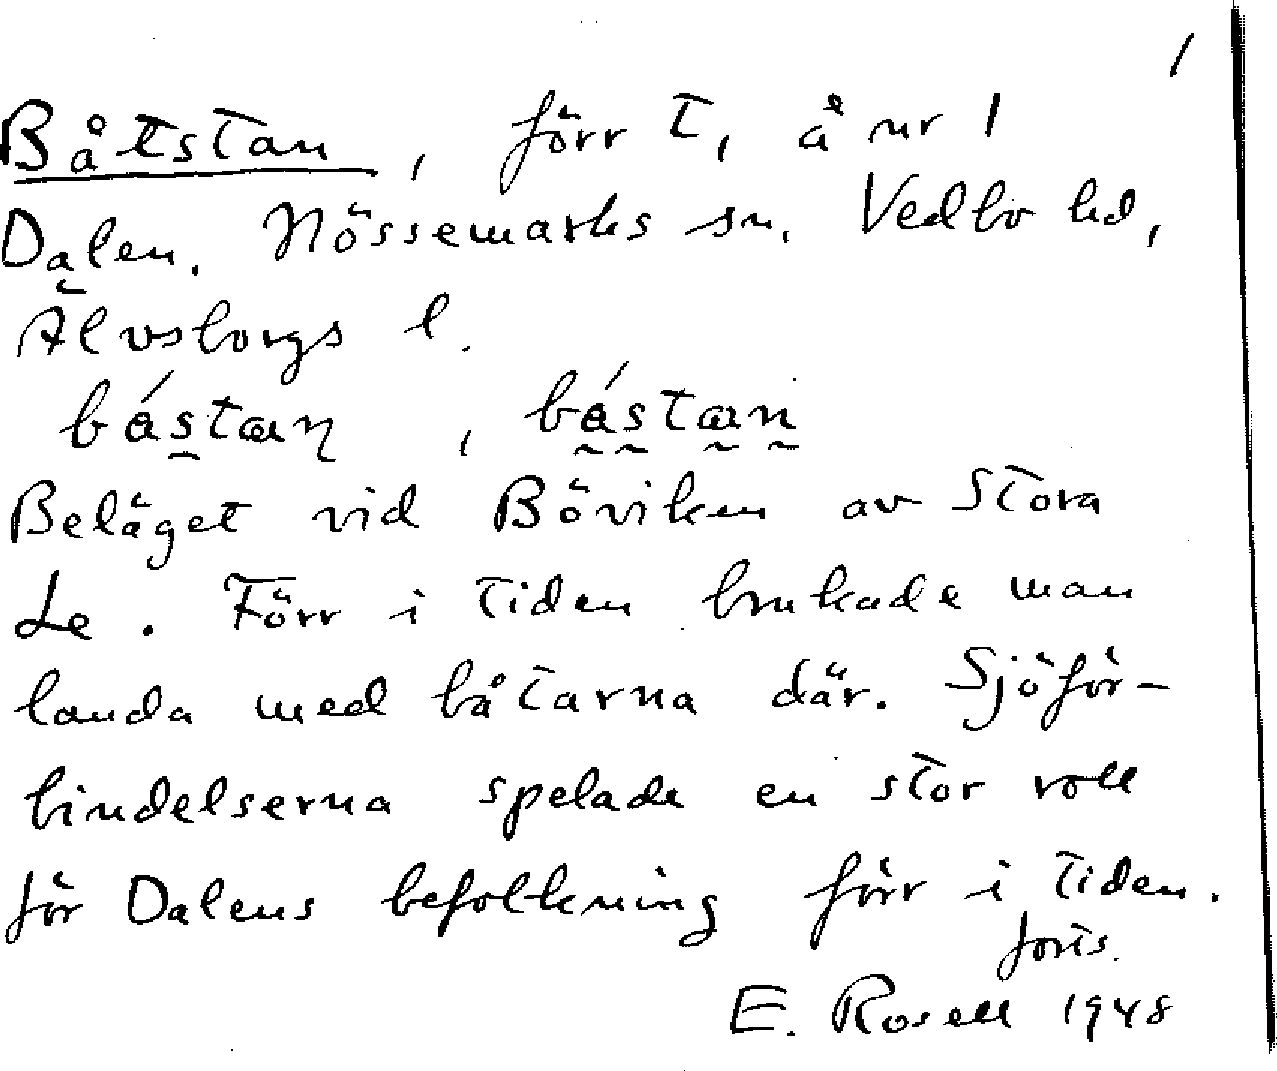 1
Båtstan, förr t, å nr 1
Dalen. Nössemarks sn. Vedbo hd,
Älvsborgs l.
bástaɳ, bástan
Beläget vid Böviken av Stora
Le. Förr i tiden brukade man
landa med båtarna där. Sjöför-
bindelserna spelade en stor roll
för Dalens befolkning förr i tiden.
forts.
E. Rosell 1948